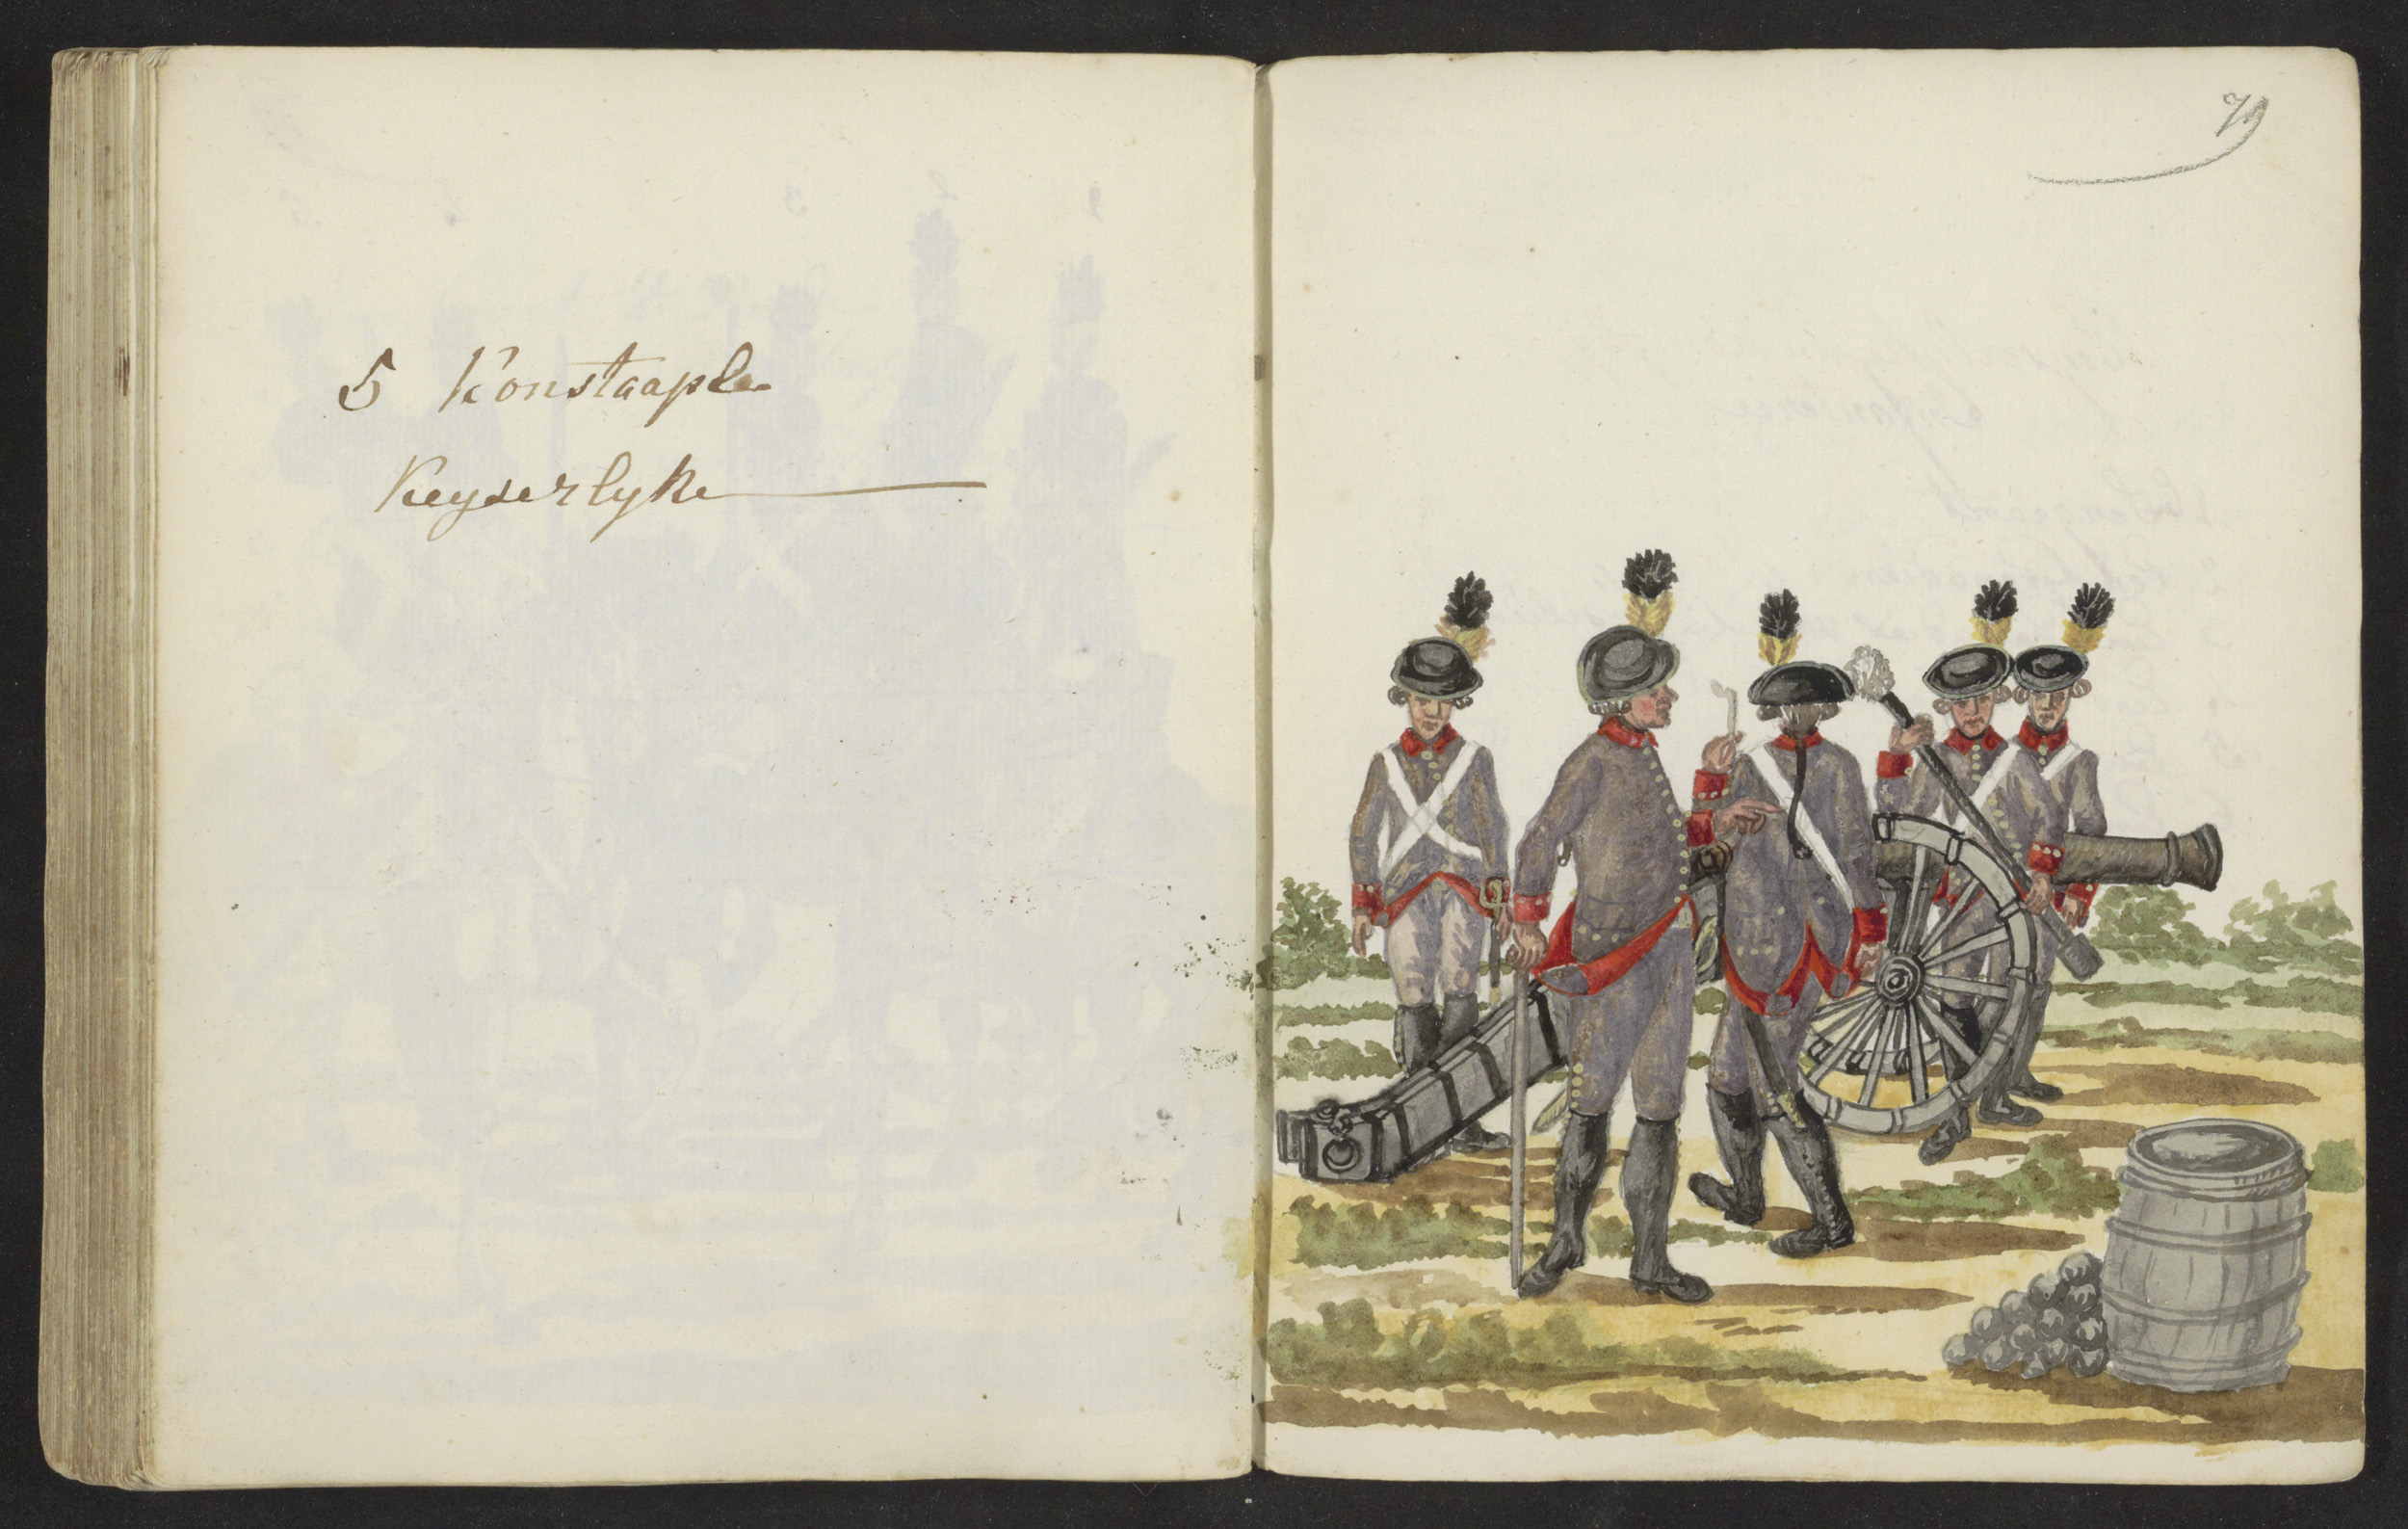 5 Konstaaple
Keyserlyke
79